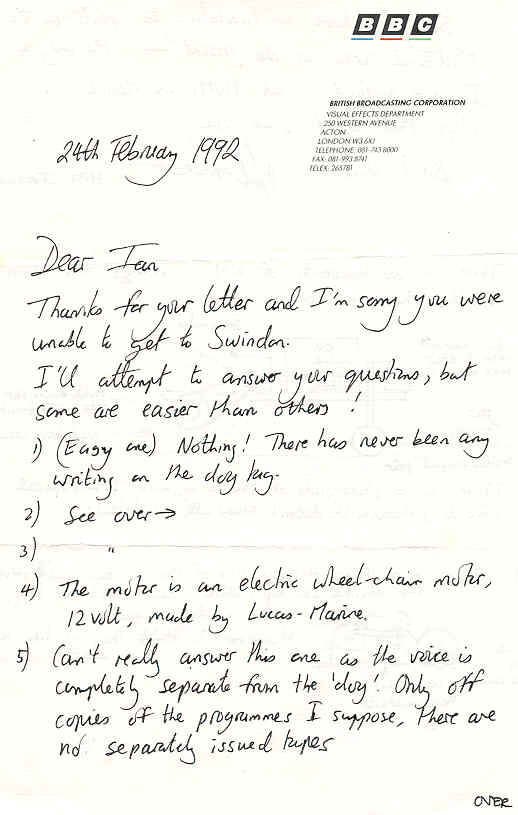 BBC
BRITISH BROADCASTING CORPORATION
VISUAL EFFECTS DEPARTMENT
250 WESTERN AVENUE
ACTON
LONDON W3 6XJ
TELEPHONE: 081-743 8000
FAX: 081-993 8741
TELEX: 265781
24th February 1992
Dear Ian
Thanks for your letter and I'm sorry you were
unable to get to Swindon.
I'll attempt to answer your questions, but
some are easier than others!
1) (Easy one) Nothing! There has never been any
writing on the dog tag.
2) See over→
3) "
4) The motor is an electric wheel-chair motor,
12 volt, made by Lucas-Marine.
5) Can't really answer this one as the voice is
completely separate from the 'dog'. Only off
copies of the programmes I suppose, there are
no separately issued tapes
OVER